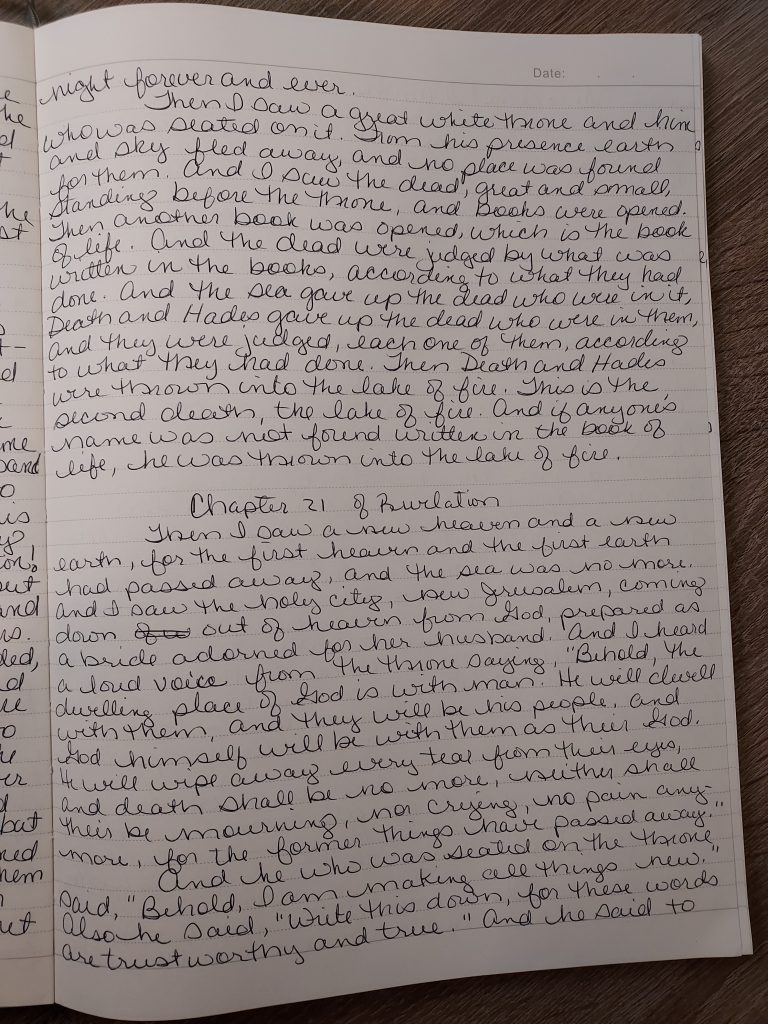 Date:
night forever and ever.
Then I saw a great white throne and him
who was seated on it. From his presence earth
and sky fled away, and no place was found
for them. And I saw the dead, great and small,
standing before the throne, and books were opened.
Then another book was opened, which is the book
of life. And the dead were judged by what was
written in the books, according to what they had
done. And the sea gave up the dead who were in it,
Death and Hades gave up the dead who were in them,
and they were judged, each one of them, according
to what they had done. Then Death and Hades
were thrown into the lake of fire. This is the
second death, the lake of fire. And if anyone's
name was not found written in the book of
life, he was thrown into the lake of fire.
Chapter 21 of Revelation
Then I saw a new heaven and a new
earth, for the first heaven and the first earth
had passed away, and the sea was no more.
and I saw the holy city, new Jerusalem, coming
down out of heaven from God, prepared as
a bride adorned for her husband. And I heard
a loud voice from the throne saying, "Behold, the
dwelling place of God is with man. He will dwell
with them, and they will be his people, and
God himself will be with them as their God.
He will wipe away every tear from their eyes,
and death shall be no more, neither shall
their be mourning, nor crying, no pain any-
more, for the former things have passed away."
And he who was seated on the throne
said, "Behold, I am making all things new."
Also he said, "Write this down, for these words
are trustworthy and true." And he said to